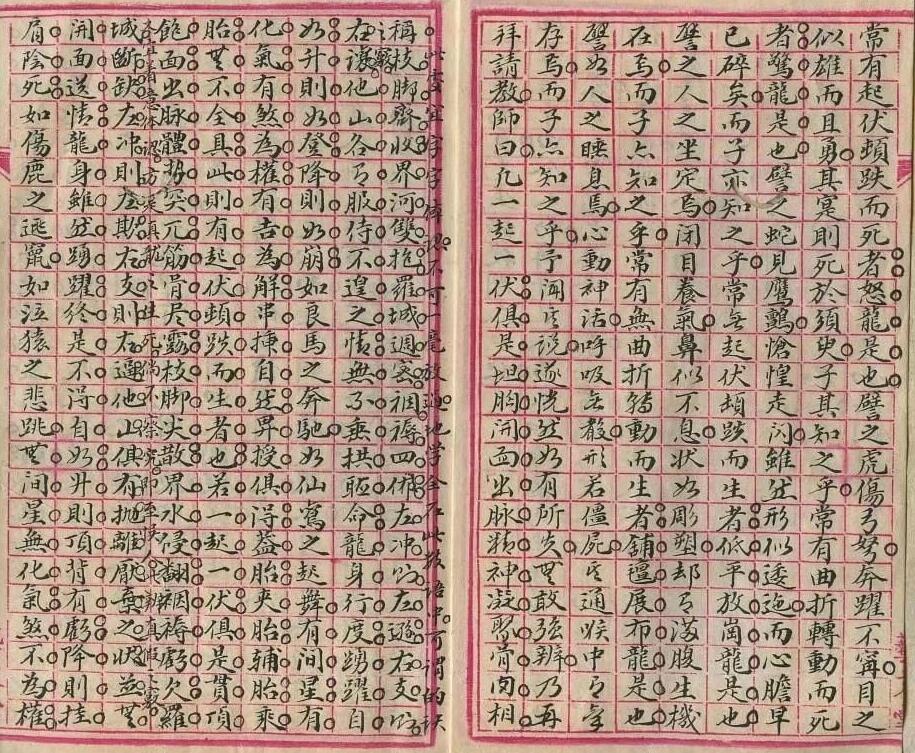 常有起伏頓跌而死者怒龍是也譬之虎傷弓弩奔躍不寗目之
似雄而且勇其寔則死於須臾子其知之乎常有曲折轉動而死
者驚龍是也譬之蛇見鷹鸇愴惶走閃雖然形似逶迤而心膽早
已碎矣而子亦知之乎常無起伏頓跌而生者低平放崗龍是也
譬之人之坐定焉閉目養氣鼻似不息狀如彫塑却有滿腹生機
在焉而子亦知之乎常有無曲折轉動而生者鋪氊展布龍是也
譬如人之睡息焉心動神活呼吸無聲形若僵屍其通喉中有氣
存焉而子亦知之乎予聞其說遂恍然如有所失無敢強辨乃再
拜請教師曰凡一起一伏俱是坦胸開面出脉精神凝聚骨肉相
稱枝脚齊收界河雙抱羅城週密裀褥四俱左冲右左遜右支
在讓他山各有服侍不遑之情無不垂拱聽命龍身行度踴躍自
如升則如登降則如崩如良馬之奔馳如仙鸞之起舞有間星有
化氣有煞為權有吉為解串揷自然畀授俱淂葢胎夾胎輔胎乘
胎無不全具此則有起伏頓跌而生者也若一起一伏俱是貫頂
飽面出脉體勢突兀筋骨呆露枝脚尖散界水侵翻裀褥虧欠羅
城斷缺左冲則右欺右支則右遜他山俱有抛離厭棄之狀並無
開面送情龍身雖然踴躍終是不淂自如升則頂背有虧降則挂
肩陰死如傷鹿之逃竄如泣猿之悲跳無間星無化氣煞不為權